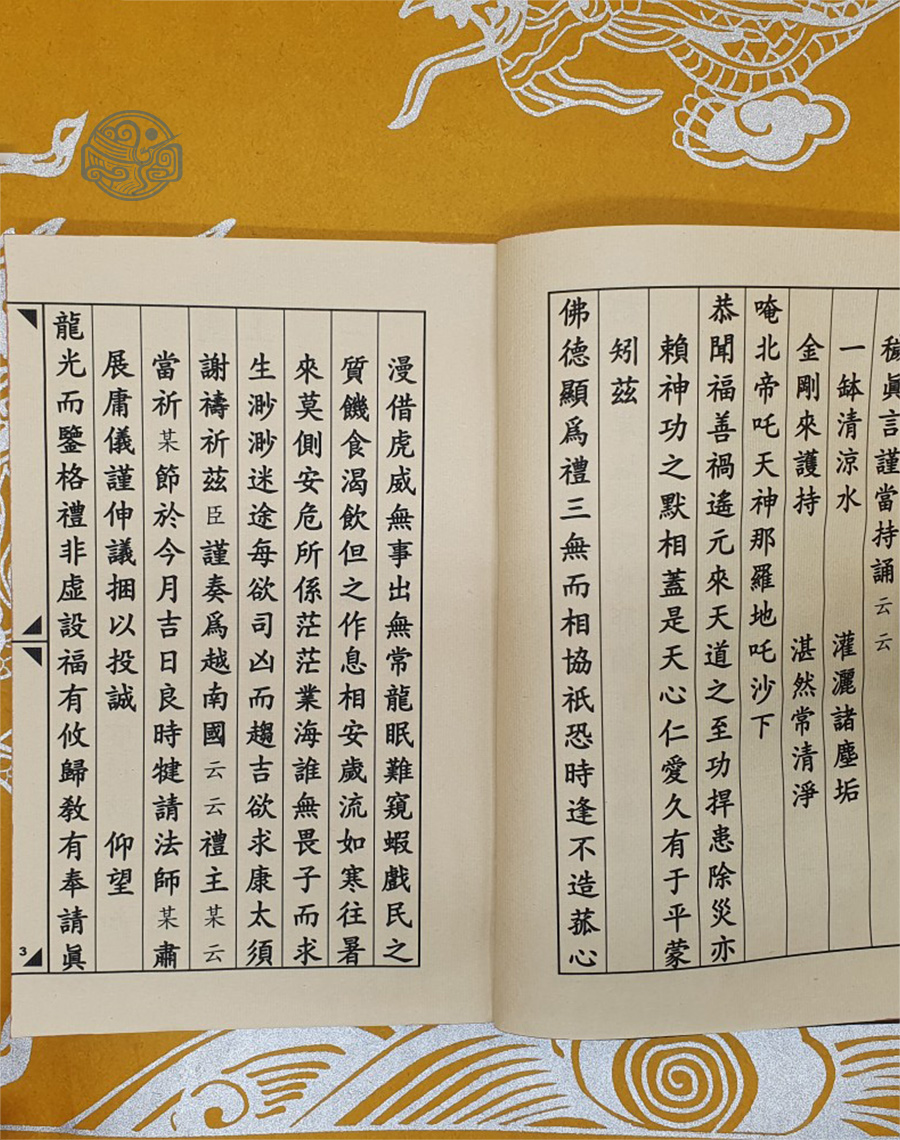 穢眞言謹當持誦云云
一缽清涼水 灌灑諸塵垢
金剛來護持 湛然常清淨
唵北帝吒天神那羅地吒沙下
恭聞福善禍遙元來天道之至功捍患除災亦
賴神功之默相蓋是天心仁愛久有于平蒙
矧茲
佛德顯爲禮三無而相協祇恐時逢不造菾心
漫借虎威無事出無常龍眠難窺蝦戲民之
質饑食渴飲但之作息相安歲流如寒往暑
來莫側安危所係茫茫業海誰無畏子而求
生渺渺迷途每欲司凶而趨吉欲求康太須
謝禱祈茲臣謹奏爲越南國云云禮主某云
當祈某節於今月吉日良時犍請法師某肅
展庸儀謹伸議捆以投誠 仰望
龍光而鑒格禮非虛設福有攸歸教有奉請眞
3